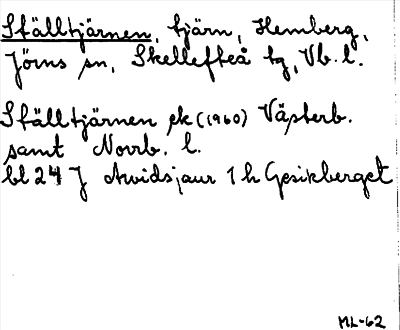 Ställtjärnen, tjärn, Hemberg,
Jörns sn, Skellefteå tg, Vb. l.
Ställtjärnen ek (1960) Västerb.
samt Norrb. l.
bl 24 J Arvidsjaur 1 h Gesikberget
ML-62